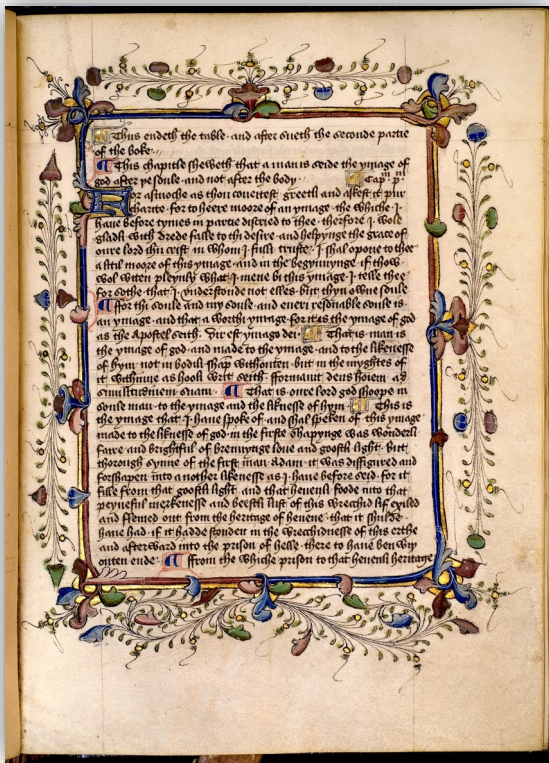 Thus endeth the table · and after sueth the secounde partie
of the boke ·
This chapitle sheweth that a man is seide the ymage of
god after þe soule · and not after the body · Cap^m p^m
For asmoche as thou coueitest greetli and askest it pur
charite · for to heere moore of an ymage · the whiche I ·
haue before tymes in partie discried to thee · therfore I · wole
gladli with drede falle to thi desire · and helpynge the grace of
oure lord ihu crist in whom I · fulli truste · I · shal opone to thee
a litil moore of this ymage · and in the begynnynge if thow
wol witen pleynly what I · mene bi this ymage · I · telle thee
for sothe · that I · vnderstonde not elles · but thyn owne soule
ffor thi soule and my soule · and eueri resonable soule is
an ymage · and that a worthi ymage · for it is the ymage of god
as the Apostel seith · Vir est ymago dei · That is · man is
the ymage of god · and made to the ymage · and to the likenesse
of hym · not in bodili shap withouten · but in the myghtes of
it withinne as hooli writ seith · fformauit deus hoiem · ad
similitudinem suam · That is oure lord god shoope in
soule man · to the ymage and the liknesse of hym · This is
the ymage that I · haue spoke of · and shal speken of this ymage
made to the liknesse of god · in the firste shapynge was wonderli
faire and brightful of brennynge loue and goostli light · But
thorough synne of the first man Adam · it was disfigured and
forshapen into a nother likenesse as I · haue before seid · for it
fille from that goostli light · and that heuenli foode into that
peyneful merkenesse and beestli lust of this wrecchid lif exiled
and flemed out from the heritage of heuene · that it shulde
haue had · if it hadde stonden in the wrecchidnesse of this erthe
and afterward into the prison of helle · there to haue ben wiþ
outen ende · ffrom the whiche prison to that heuenli heritage